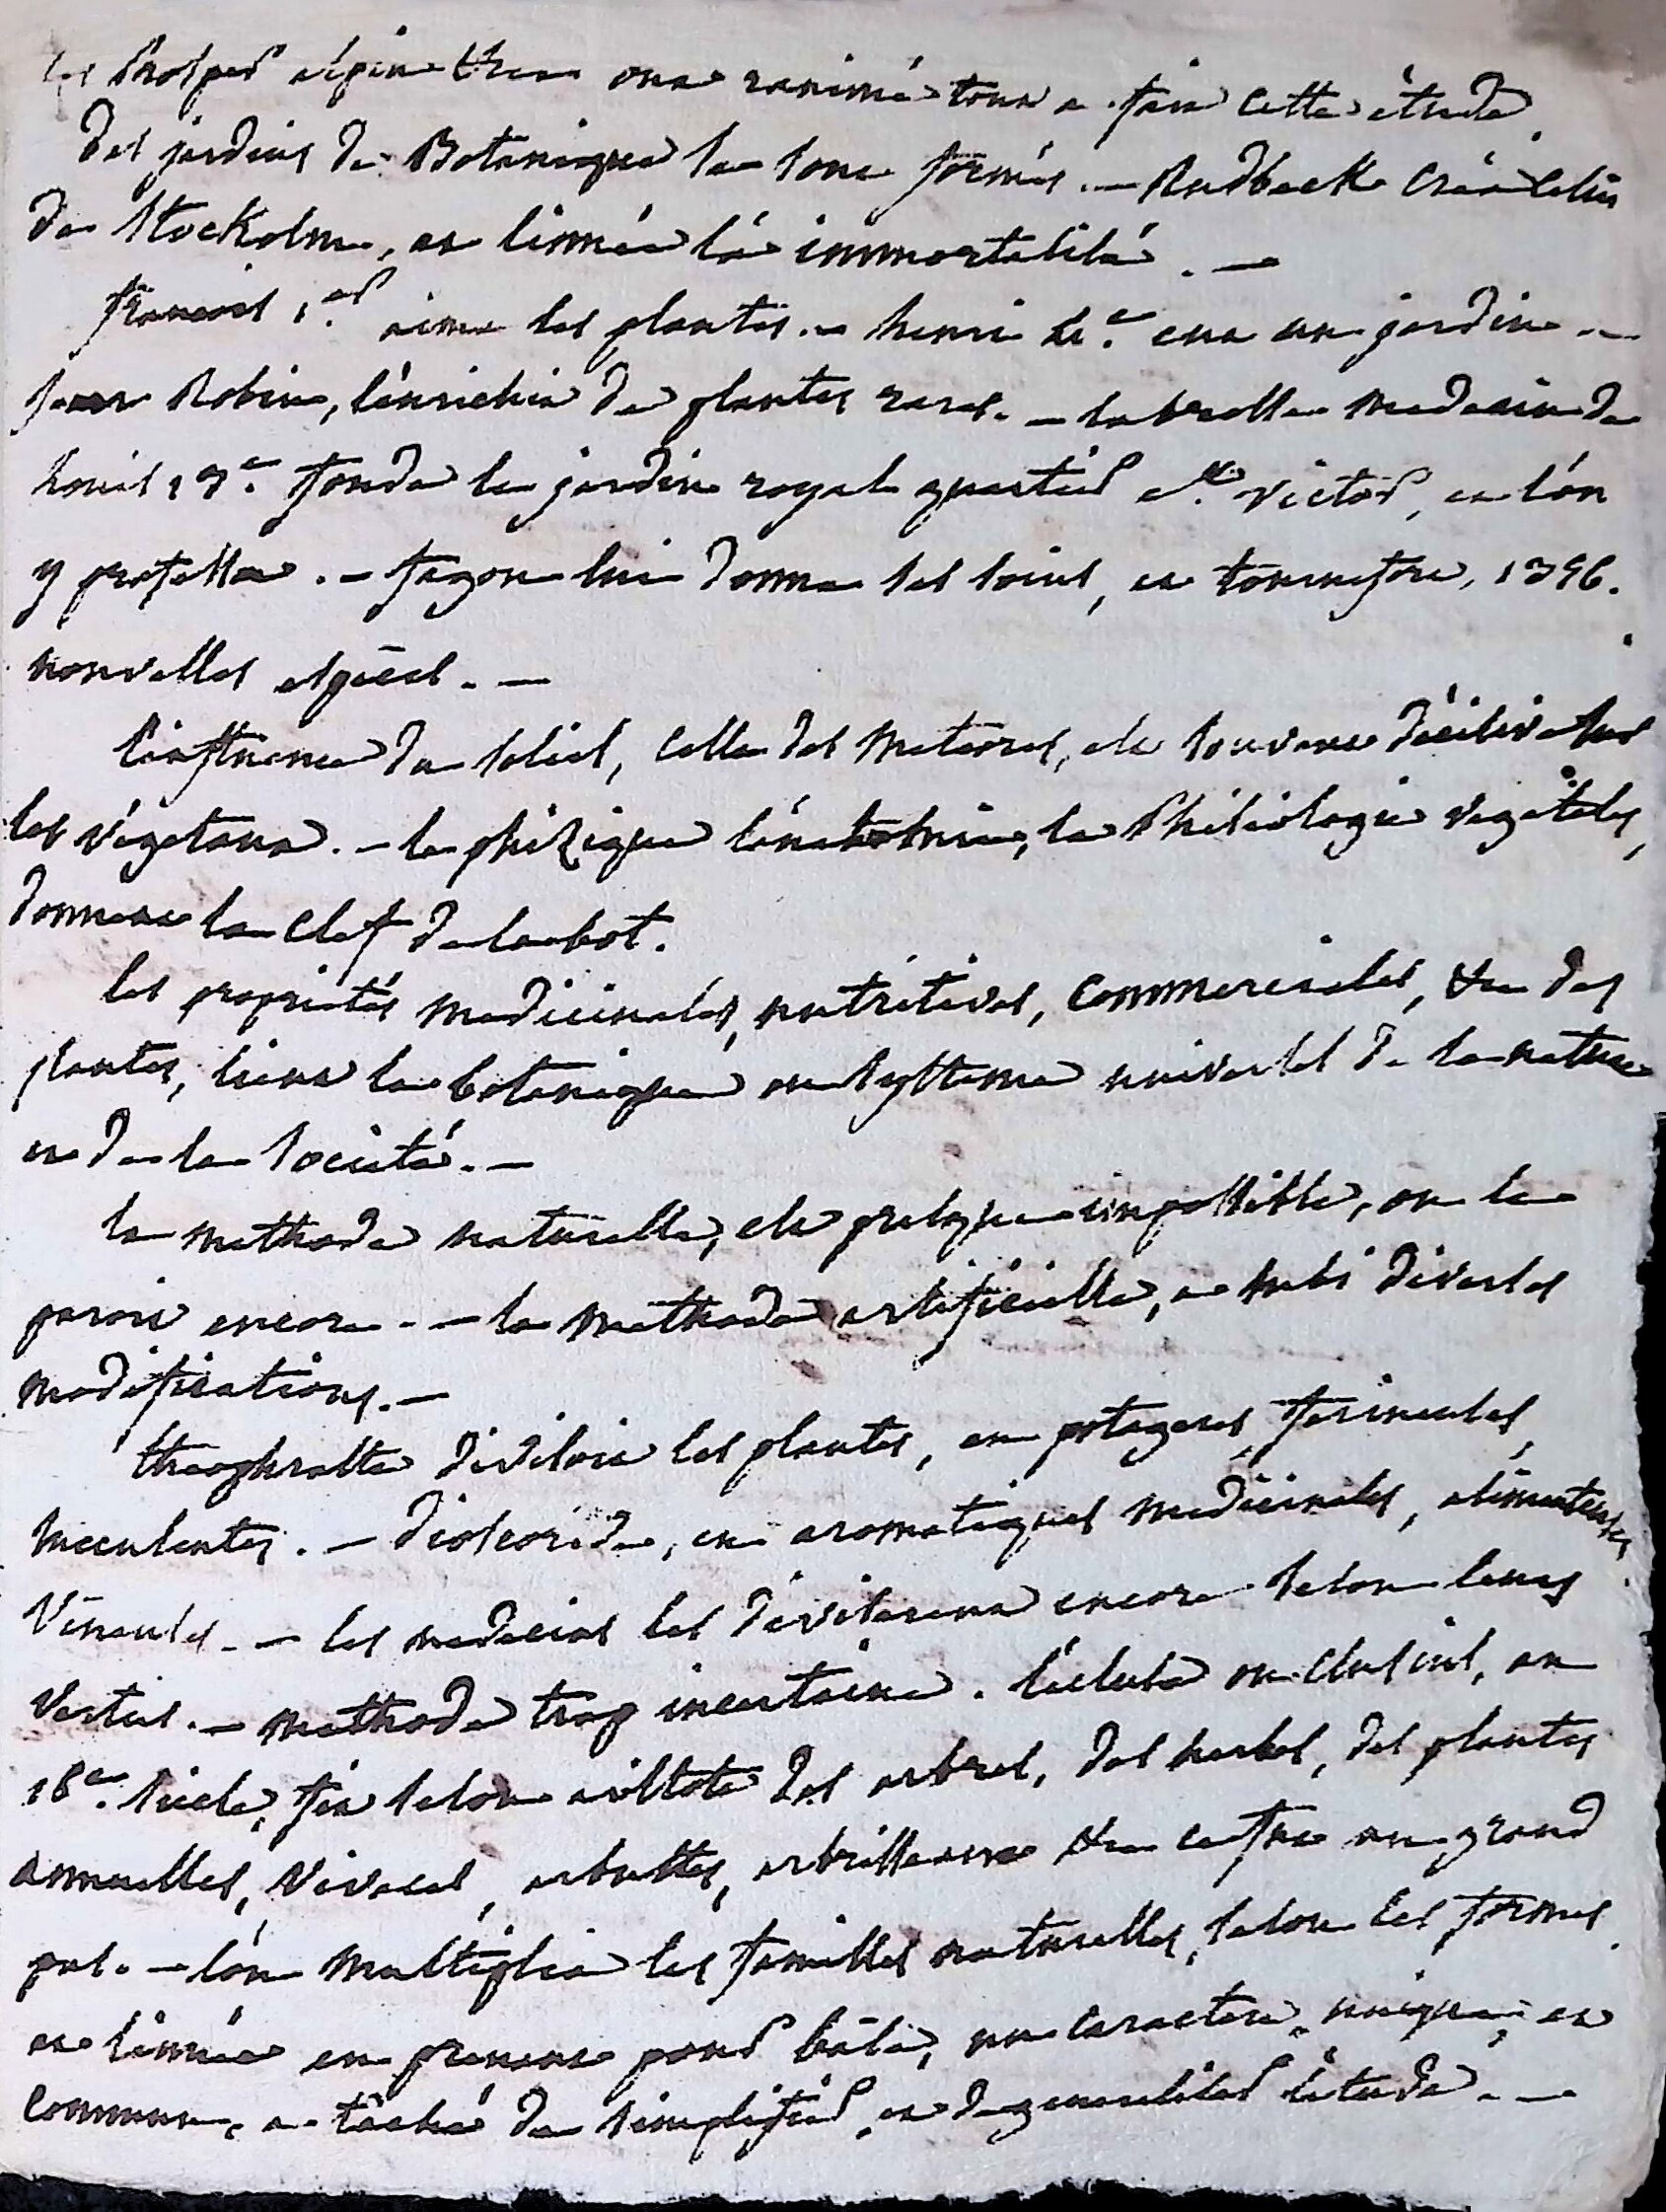 prosper alpin &c. ont ranimé tout a fait cette étude.
des jardins de Botanique se sont formés. — Rudbeck créa celui
de stockolm, et linnée l'a immortalisé. —
francois 1.er aima les plantes. — henri 4.e eut un jardin. —
jean Robin, l'enrichit de plantes rares. — labrosse medecin de
louis 13.e fonda le jardin royal quartier st. victor, et l'on
y professa. — fagon lui donna ses soins, et tournefort, 1356.
nouvelles espèces. —
l'influence du soleil, celle des meteores, est souvent décisive sur
les végetaux. — la phizique l'anatomie, la phisiologie vegétales,
donnent la clef de la bot.
les proprietés medicinales, nutritives, commerciales, &c. des
plantes, lient la botanique au systeme universel de la nature
et de la societé. —
la methode naturelle, est presque impossible, on le
paroit encore. — la methode artificielle, a subi diverses
modifications. —
theophraste divisoit les plantes, en potageres, farineuses,
succulentes. — dioscoride, en aromatiques medicinales, alimenteuses,
vineuses. — les medecins les diviserent encore selon leurs
vertus. — methode trop incertaine. l'ecluse ou clusius, au
16e. siecle, fit selon aristote des arbres, des herbes, des plantes
annuelles, vivaces, arbustes, arbrisseaux &c. ce fut un grand
pas. — l'on multiplia les familles naturelles, selon les formes
et linnée en prenant pour base, un caractere unique, et
commun, a taché de simplifier, et de generaliser l'etude. —